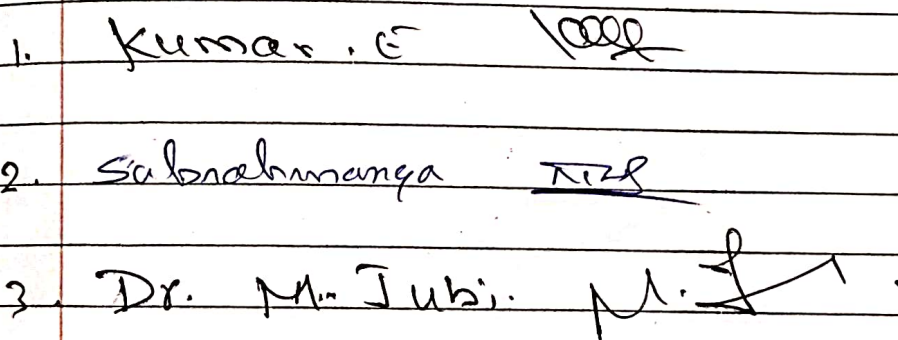 1. Kumar. E
2. Sabrahmanya
3. Dr. M. Jubi.